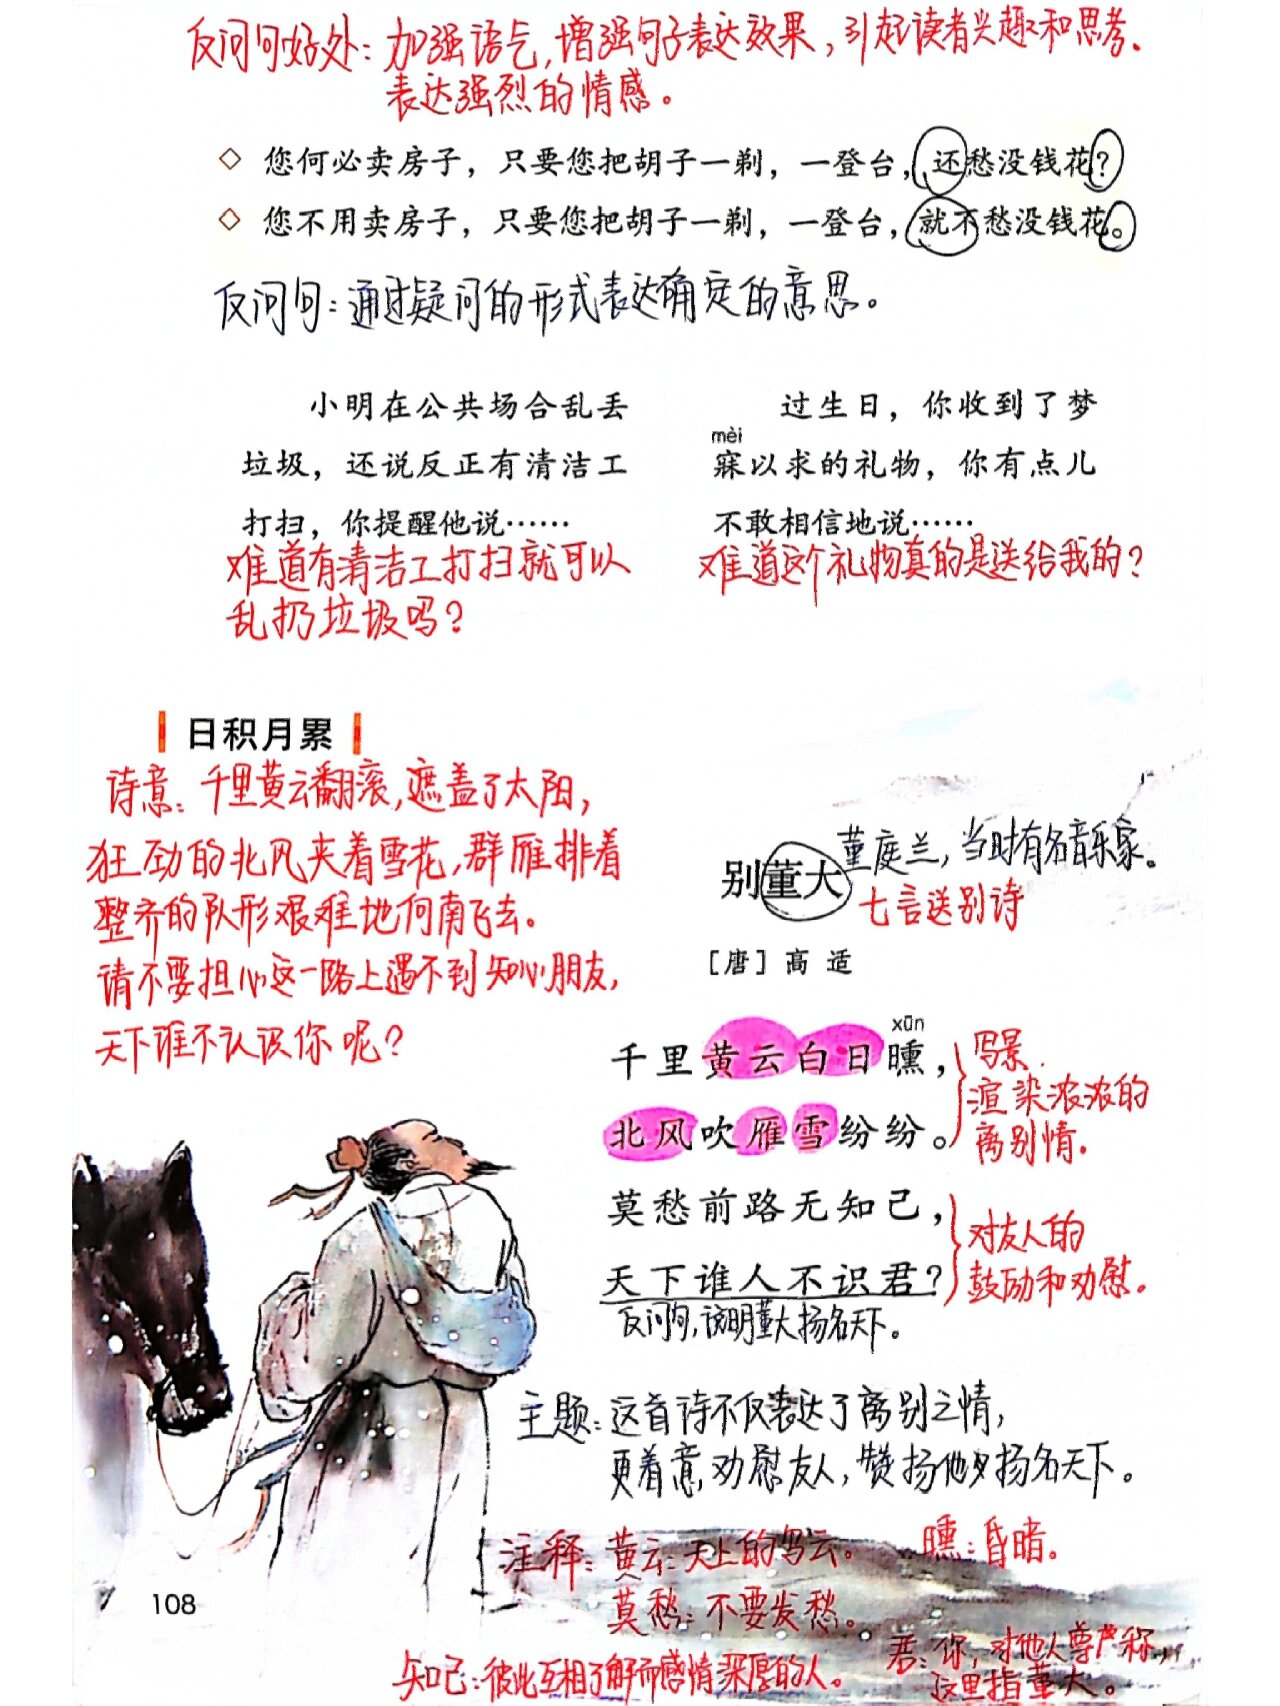 反问句好处：加强语气，增强句子表达效果，引起读者兴趣和思考。
表达强烈的情感。
◇ 您何必卖房子，只要您把胡子一剃，一登台，还愁没钱花？
◇ 您不用卖房子，只要您把胡子一剃，一登台，就不愁没钱花。
反问句：通过疑问的形式表达确定的意思。
小明在公共场合乱丢
垃圾，还说反正有清洁工
打扫，你提醒他说……
难道有清洁工打扫就可以
乱扔垃圾吗？
过生日，你收到了梦
mèi
寐以求的礼物，你有点儿
不敢相信地说……
难道这个礼物真的是送给我的？
日积月累
诗意：千里黄云翻滚，遮盖了太阳，
狂劲的北风夹着雪花，群雁排着
整齐的队形艰难地向南飞去。
请不要担心这一路上遇不到知心朋友，
天下谁不认识你呢？
别董大
董庭兰，当时有名音乐家。
七言送别诗
［唐］高适
xūn
千里黄云白日曛，
北风吹雁雪纷纷。
写景.
渲染浓浓的
离别情.
莫愁前路无知己，
天下谁人不识君？
对友人的
鼓励和劝慰.
反问句，说明董大扬名天下。
主题：这首诗不仅表达了离别之情，
更着意劝慰友人，赞扬他扬名天下。
注释：黄云：天上的乌云。
曛：昏暗。
莫愁：不要发愁。
君：你，对他人尊称，
这里指董大。
知己：彼此互相了解而感情深厚的人。
108